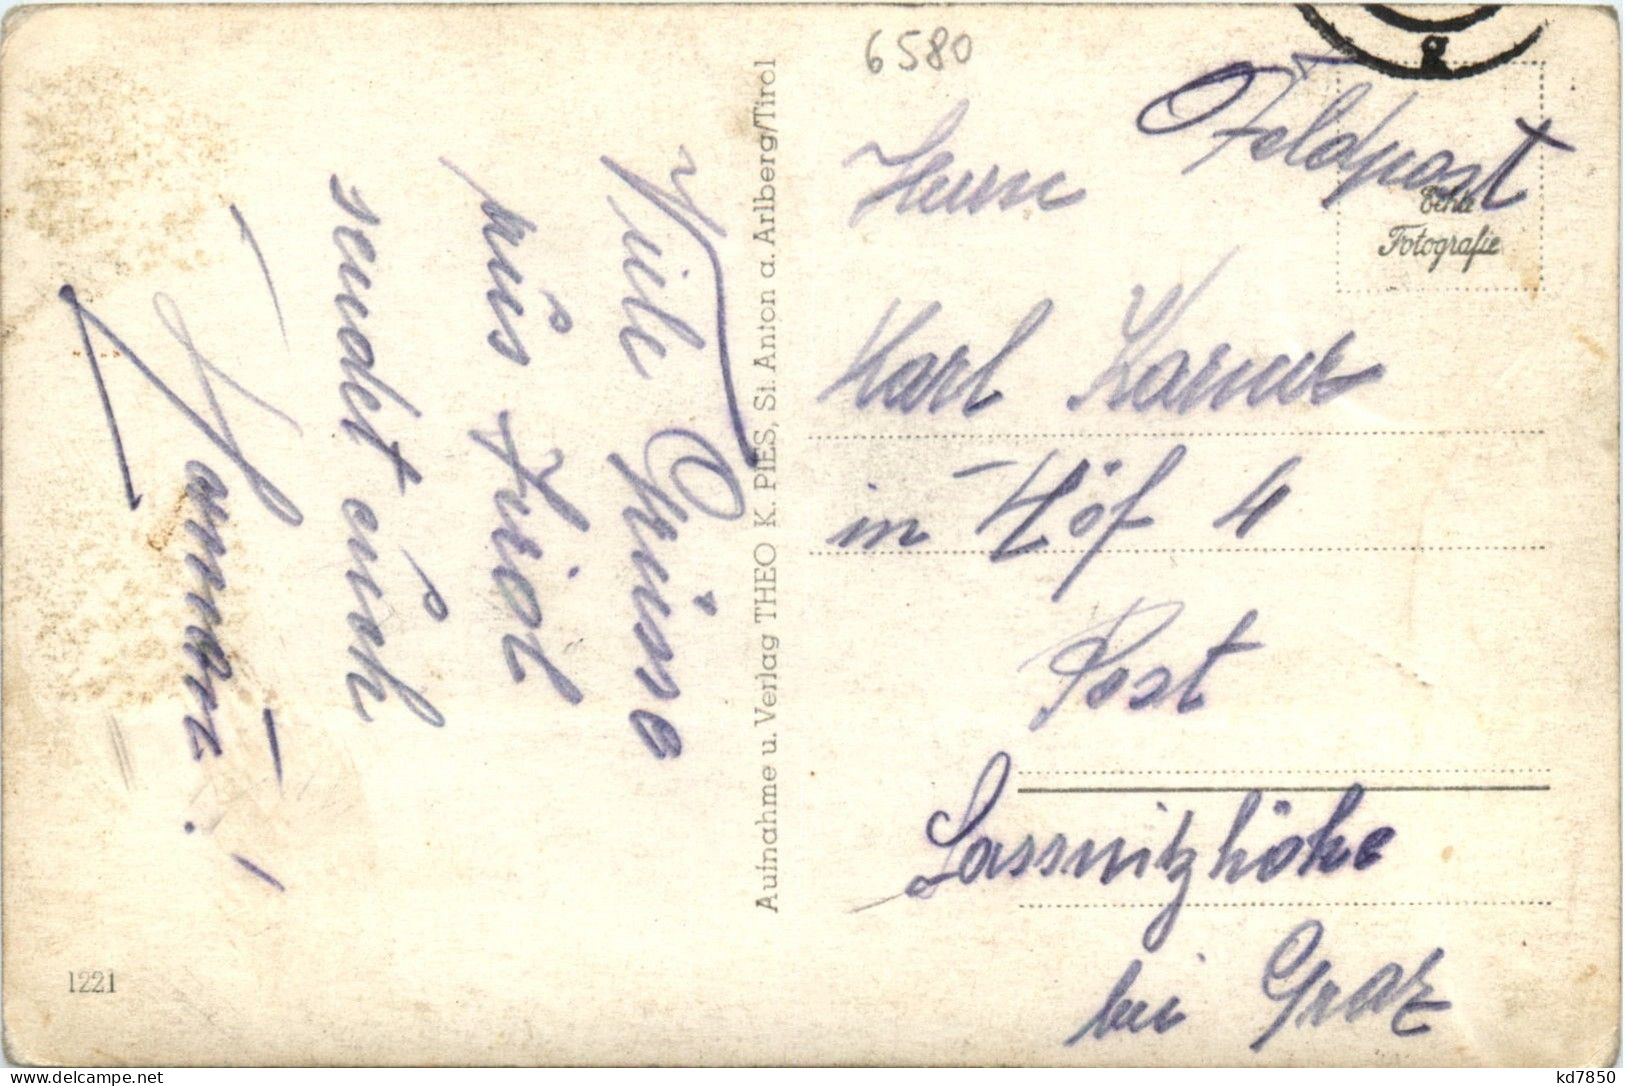 6580
Feldpost
Echte
Fotografie
Herrn
Karl Karner
in Höf 4
Post
Lassnitzhöhe
bei Graz
Aufnahme u. Verlag THEO K. PIES, St. Anton a. Arlberg/Tirol
Viele Grüsse
aus Tirol
sendet euch
1221
delcampe.net
kd7850